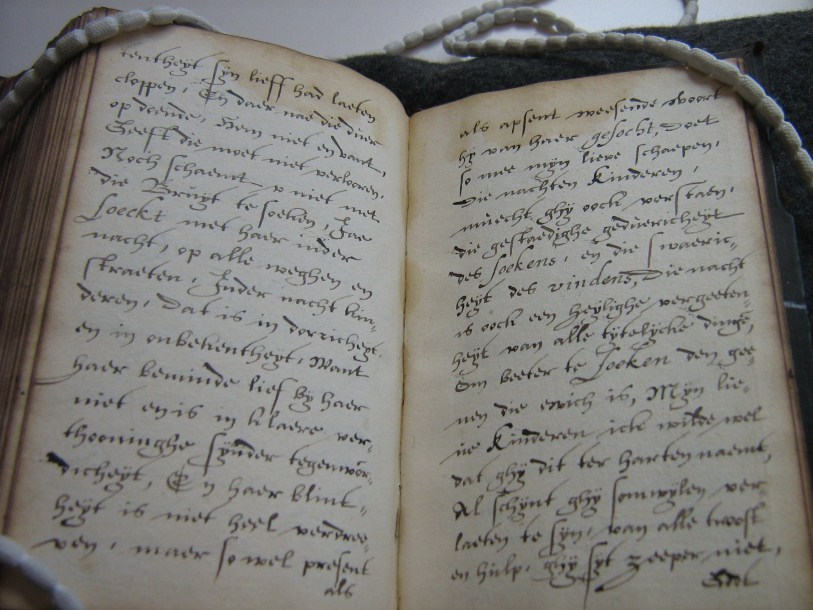 tentheyt syn lieff had laeten
cloppen, En daer nae die duer
op doende, Hem niet en vant,
Geeft die moet niet verlooren,
Noch schaemt u niet met
die Bruyt te soeken, Jae
Soeckt met haer inder
nacht, op alle weghen en
straeten, Inder nacht kin-
deren, Dat is in doncheyt,
en in onbekentheyt, Want
haer beminde lief by haer
niet en is in klaere ver-
thooninghe synder tegenwor-
dicheyt, En haer blint-
heyt is niet heel verdree-
ven, maer so wel present
als
als apsent weesende wort
hy van haer gesocht, Doet
so mee myn lieve schaepen,
Die nachten Kinderen,
muecht ghy oock verstaen,
die gestaedighe geduericheyt
des soekens, en die swaeric-
heyt des vindens, Die nacht
is oock een heylighe vergeeten-
heyt van alle tytelycke dingē,
Om beeter te Soeken den gee-
nen die ewich is, Myn lie-
ve Kinderen ick wilde wel
dat ghy dit ter harten naemt,
Al schynt ghy somwylen ver-
laeten te syn, van alle troost
en hulp, ghy syt zeeper niet,